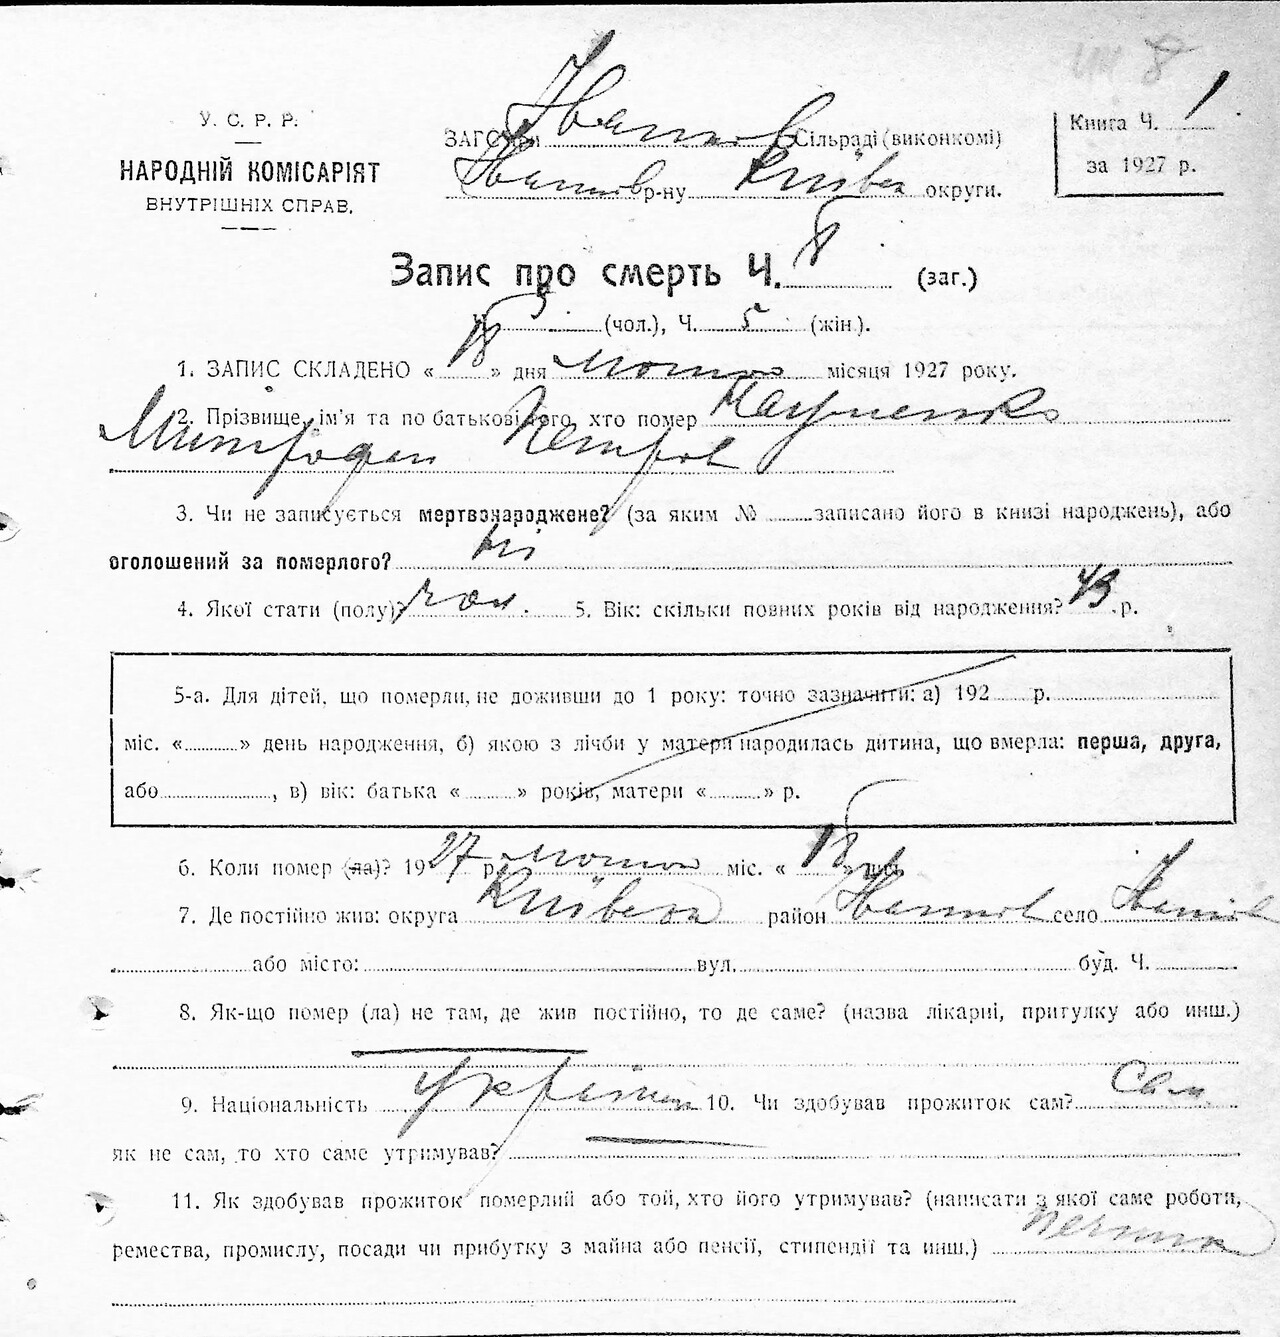 У. С. Р. Р.
НАРОДНІЙ КОМІСАРІЯТ
ВНУТРІШНІХ СПРАВ.
ЗАГС при Іванків Сільраді (виконкомі)
Іванків р-ну Київськ округи.
Книга Ч. 1
за 1927 р.
8
Запис про смерть Ч. 8 (заг.)
Ч. 3 (чол.), Ч. 5 (жін.).
1. ЗАПИС СКЛАДЕНО « 18 » дня лютого місяця 1927 року.
2. Прізвище, ім'я та по батькові того, хто помер
Митрофан Петров
3. Чи не записується мертвонароджене? (за яким № записано його в книзі народжень), або
оголошений за померлого? ні
4. Якої стати (полу)? чол. 5. Вік: скільки повних років від народження? 43 р.
5-а. Для дітей, що померли, не доживши до 1 року: точно зазначити: а) 192 р.
міс. « » день народження, б) якою з лічби у матери народилась дитина, що вмерла: перша, друга,
або , в) вік: батька « » років, матери « » р.
6. Коли помер (ла)? 1927 р. лютого міс. « 18 » дня
7. Де постійно жив: округа Київськ район Іванків село Іванків
або місто: вул. буд. Ч.
8. Як-що помер (ла) не там, де жив постійно, то де саме? (назва лікарні, притулку або инш.)
9. Національність українець 10. Чи здобував прожиток сам? Сам
як не сам, то хто саме утримував?
11. Як здобував прожиток померлий або той, хто його утримував? (написати з якої саме роботи,
ремества, промислу, посади чи прибутку з майна або пенсії, стипендії та инш.)